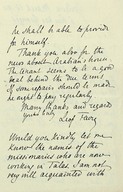 he shall be able to provide
for himself.
Thank you also for the
news about Urahan's house.
The tenant seems to be a good
but behind the due terms.
If some repairs should be made
he ought to pay regularly.
Many thanks and regards
Yours truly
Would you kindly let me
know the names of the
missionaries who are now
working in I am not
very well acquainted with